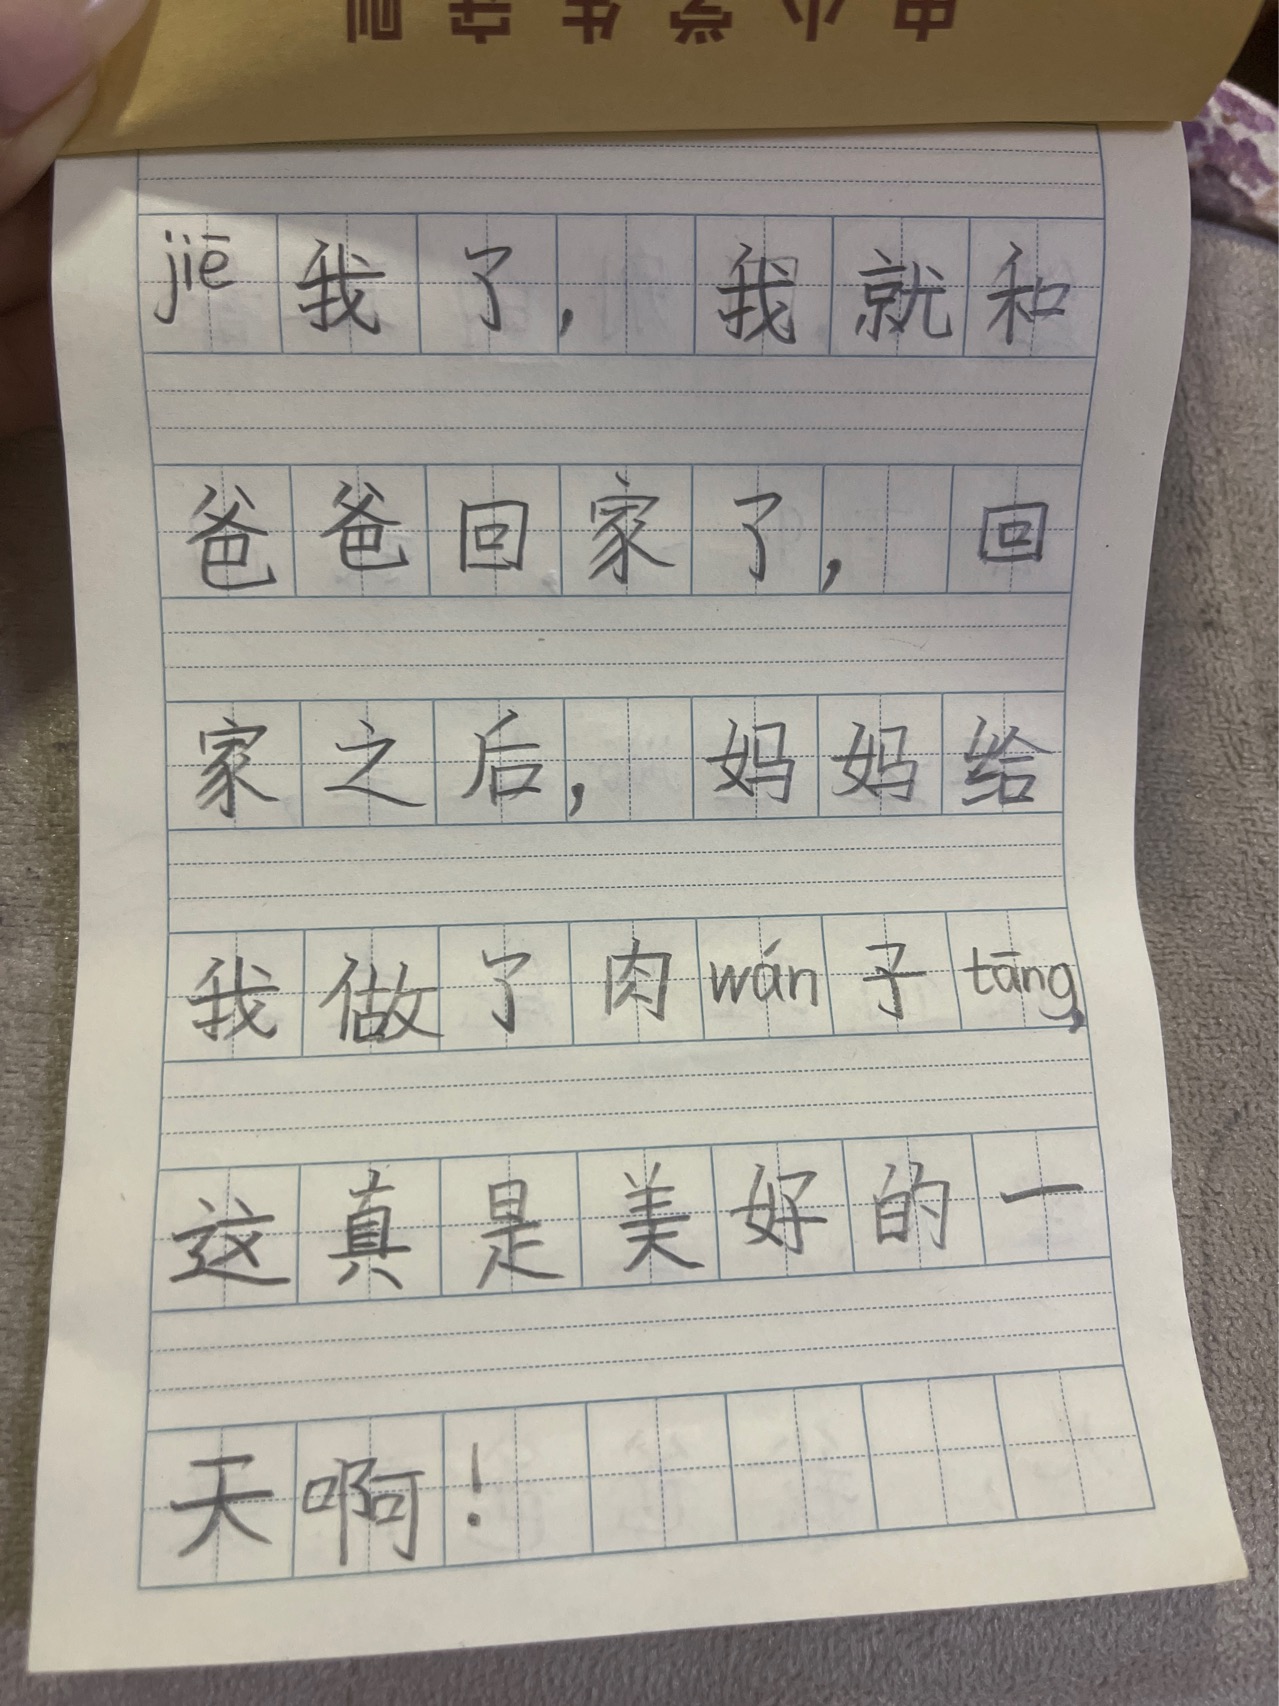 中小学生守则
jiē我了，我就和
爸爸回家了，回
家之后，妈妈给
我做了肉wán子tāng，
这真是美好的一
天啊！